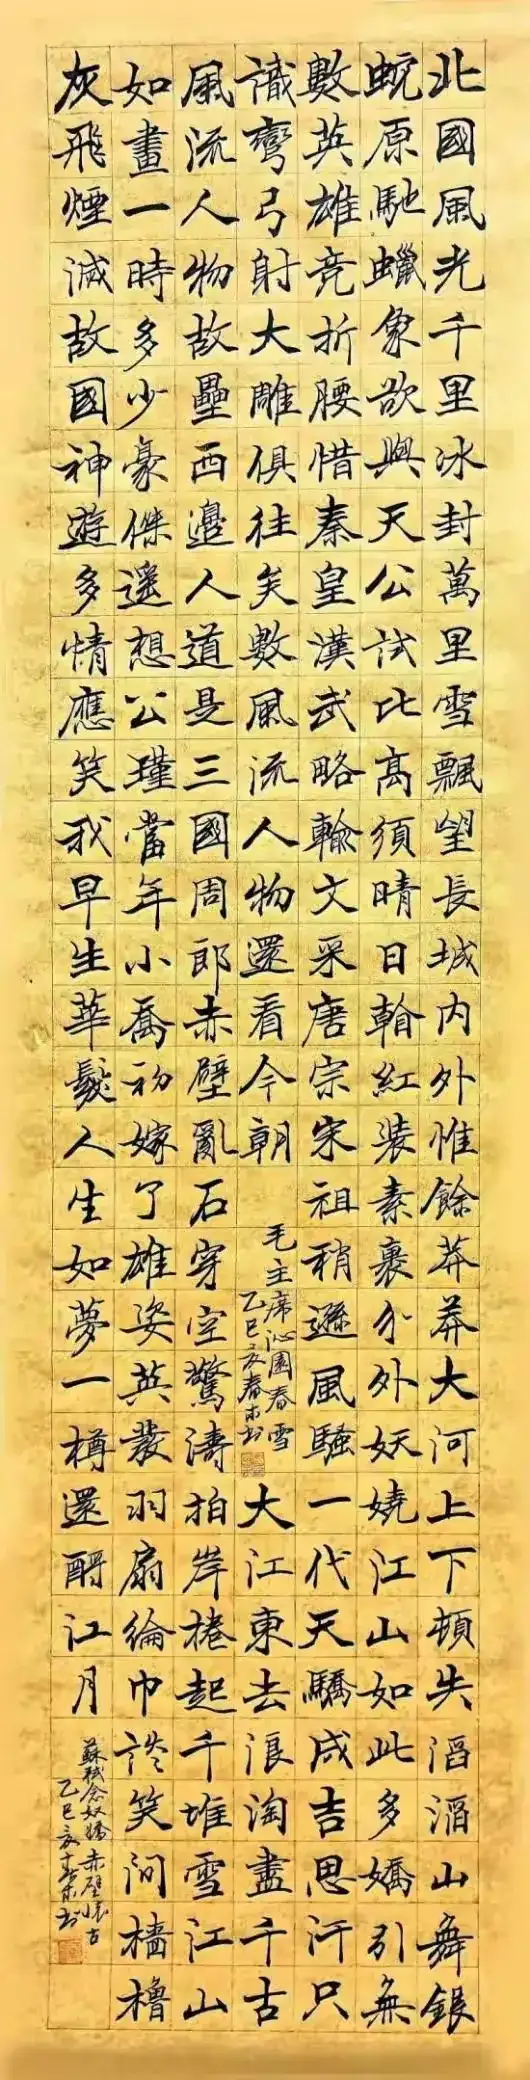 北國風光千里冰封萬里雪飄望長城内外惟餘莽莽大河上下頓失滔滔山舞銀
蛇原馳蠟象欲與天公試比高須晴日翰紅裝素裹分外妖嬈江山如此多嬌引無
數英雄竞折腰惜秦皇漢武略輸文采唐宗宋祖稍遜風騷一代天驕成吉思汗只
識彎弓射大雕俱往矣數風流人物還看今朝
毛主席沁園春雪
乙巳亥春
大江東去浪淘盡千古
風流人物故壘西邊人道是三國周郎赤壁亂石穿空驚濤拍岸捲起千堆雪江山
如畫一時多少豪傑遙想公瑾當年小喬初嫁了雄姿英發羽扇綸巾談笑间檣櫓
灰飛煙滅故國神遊多情應笑我早生華髮人生如夢一樽還酹江月
蘇軾念奴嬌赤壁懷古
乙巳亥